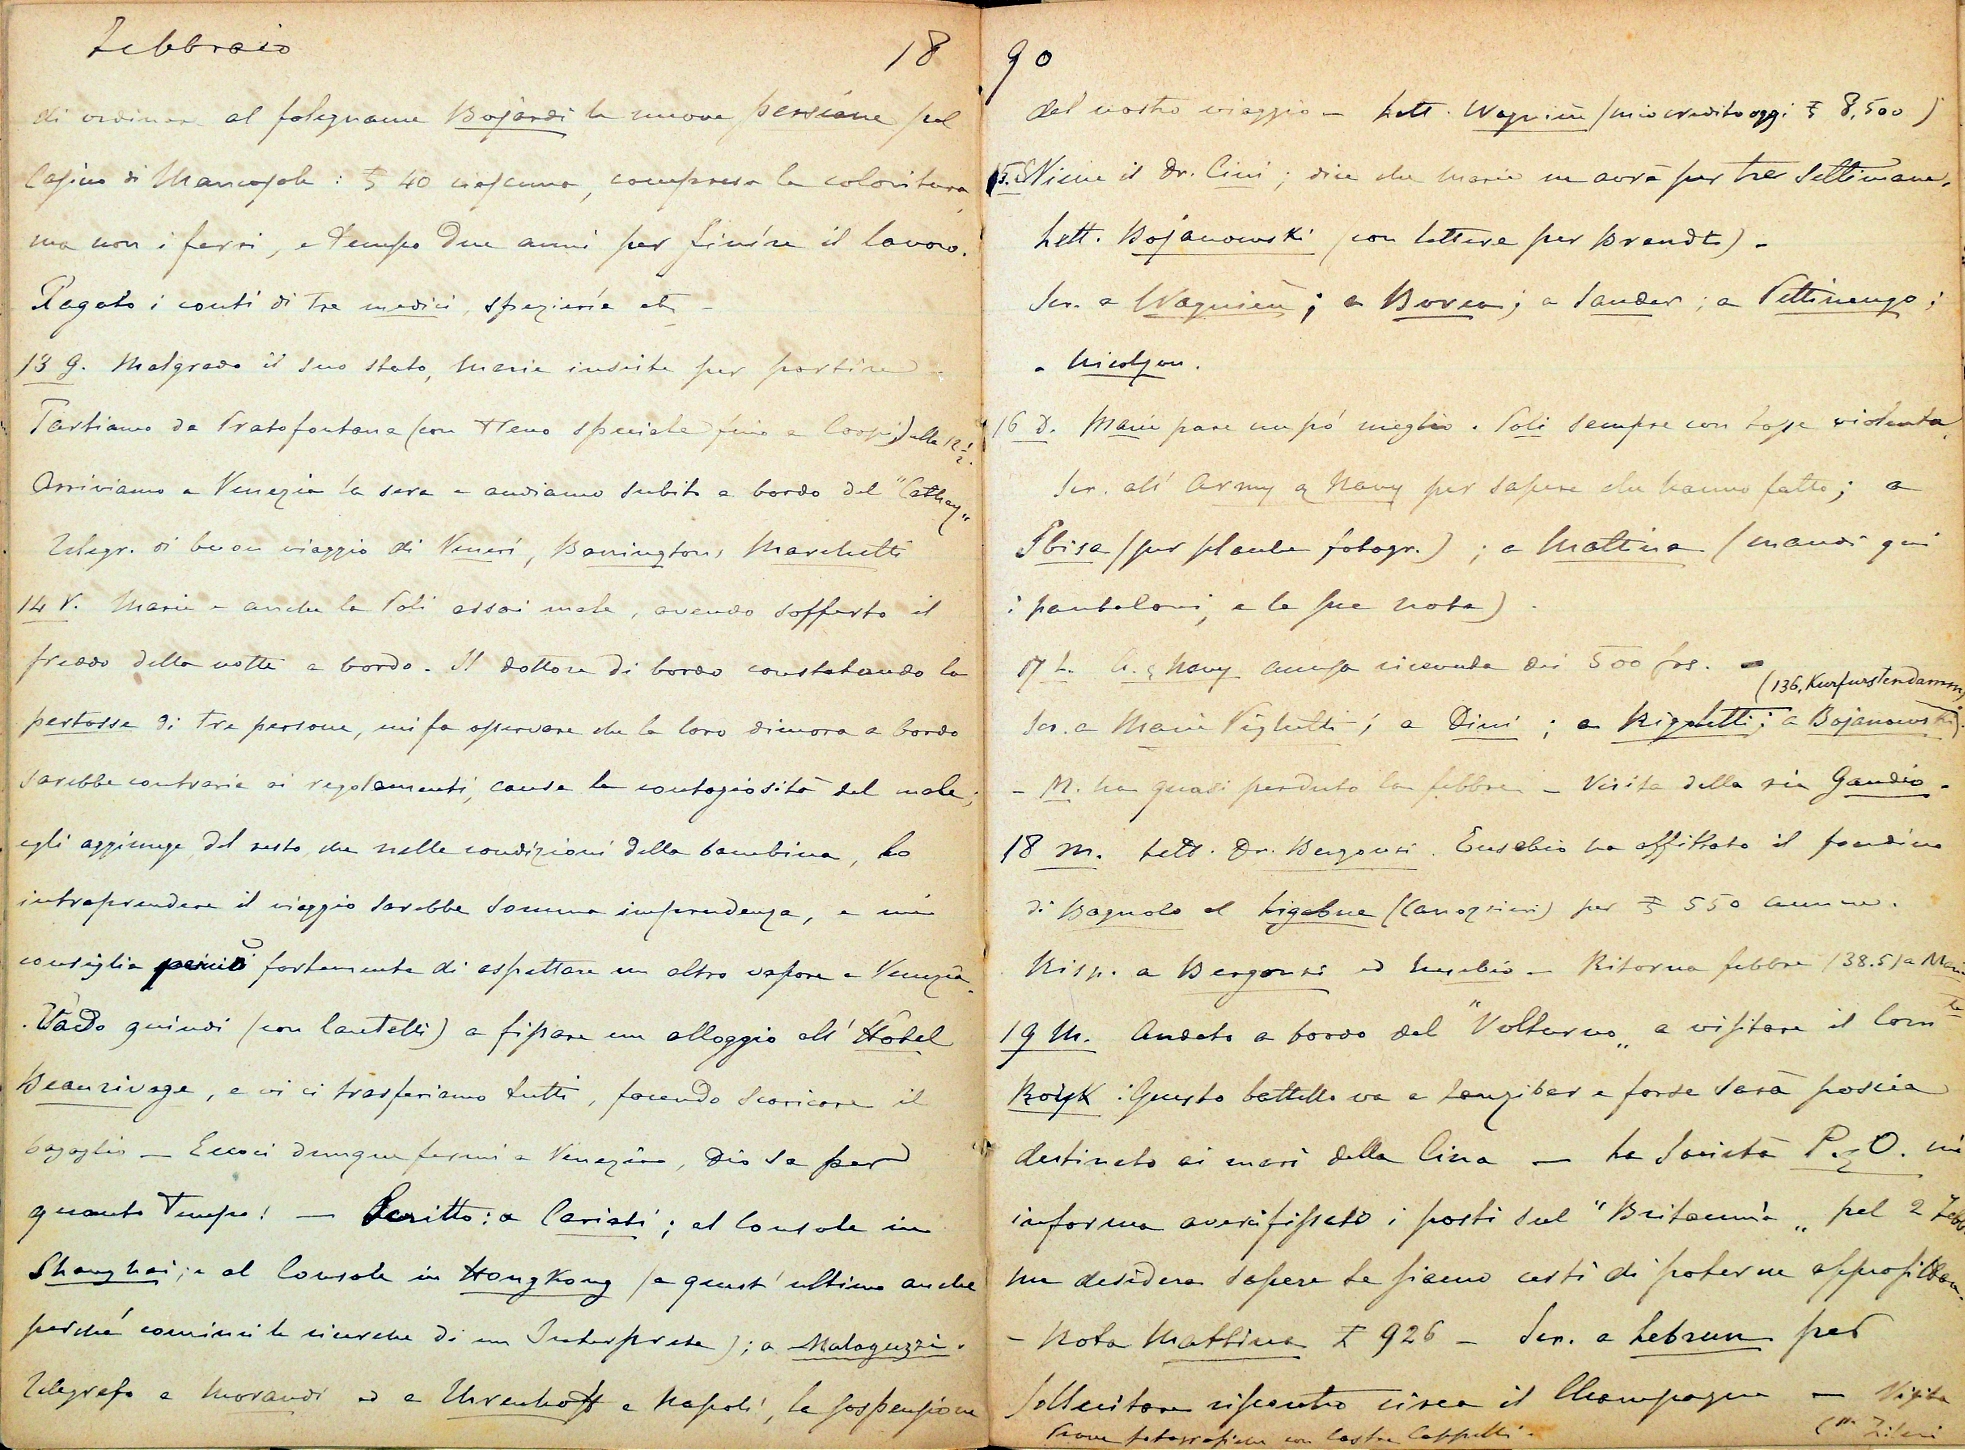 Febbraio 18
di ordinare al falegname Bojardi le nuove persiane pel
Casino di Mancasale : £ 40 ciascuna, compresa la coloritura,
ma non i ferri, e tempo due anni per finire il lavoro.
Pagato i conti di tre medici, spezierie etc —
13 G. Malgrado il suo stato, Marie insiste per partire —
Partiamo da Pratofontana (con treno speciale fino a Carpi) alle 12 1/2.
Arriviamo a Venezia la sera e andiamo subito a bordo del "Cathay"
Telegr. di buon viaggio di Veneri, Barrington, Marchetti
14 V. Marie e anche la Poli assai male, avendo sofferto il
freddo della notte a bordo. Il dottore di bordo constatando la
pertosse di tre persone, mi fa osservare che la loro dimora a bordo
sarebbe contraria ai regolamenti, causa la contagiosità del male;
egli aggiunge del resto che nelle condizioni della bambina, lo
intraprendere il viaggio sarebbe somma imprudenza, e mi
consiglia perciò fortemente di aspettare un altro vapore a Venezia.
Vado quindi (con Cantelli) a fissare un alloggio all' Hôtel
Beaurivage, e vi ci trasferiamo tutti, facendo scaricare il
bagaglio — Eccoci dunque fermi a Venezia, Dio sa per
quanto tempo! — Scritto: a Cariati; al Console in
Shanghai; e al Console in HongKong (a quest' ultimo anche
perché cominci le ricerche di un Interprete); a Malaguzzi.
Telegrafo a Morandi ed a Ehrenhoff a Napoli, la sospensione
90
del nostro viaggio — Lett. Wagnière (mio credito oggi £ 8,500)
15. S. Viene il Dr. Cini; dice che Marie ne avrà per tre settimane.
Lett. Bojanowski (con lettere per Brandt) —
Scr. a Wagnière; a Borea; a Sander; a Pettinengo;
a Nicolson.
16 D. Marie pare un pó meglio. Poli sempre con tosse violenta.
Scr. all' Army & Navy per sapere che hanno fatto; a
Ibisa (per planche fotogr.); a Mattina (mandi qui
i pantaloni, e la sua nota).
17 L. A. & Navy accusa ricevuta dei 500 frs. —
(136, Kurfurstendamm)
Scr. a Marie Vighetti; a Dini; a Righetti; a Bojanowski.
— M. ha quasi perduto la febbre — Visita della sia Gaudio.
18 M. Lett. Dr. Bergonzi. Eusebio ha affittato il fondino
di Bagnolo al Ligabue (Canozzieri) per £ 550 annue.
Risp. a Bergonzi ed Eusebio — Ritorna febbre (38.5) a Marie
19 M. Andato a bordo del "Volturno" a visitare il Com te
Royk : Questo battello va a Zanzibar e forse sarà poscia
destinato ai mari della Cina — La Società P. & O. mi
informa aver fissato i posti sul "Britannia" pel 2 Febb.
ma desidera sapere se siamo certi di poterne approfittare.
— Nota Mattina £ 926 — Scr. a Lebrun per
sollecitare riscontro circa il Champagne — Visita
Prove fotografiche con lastre Cappelli.